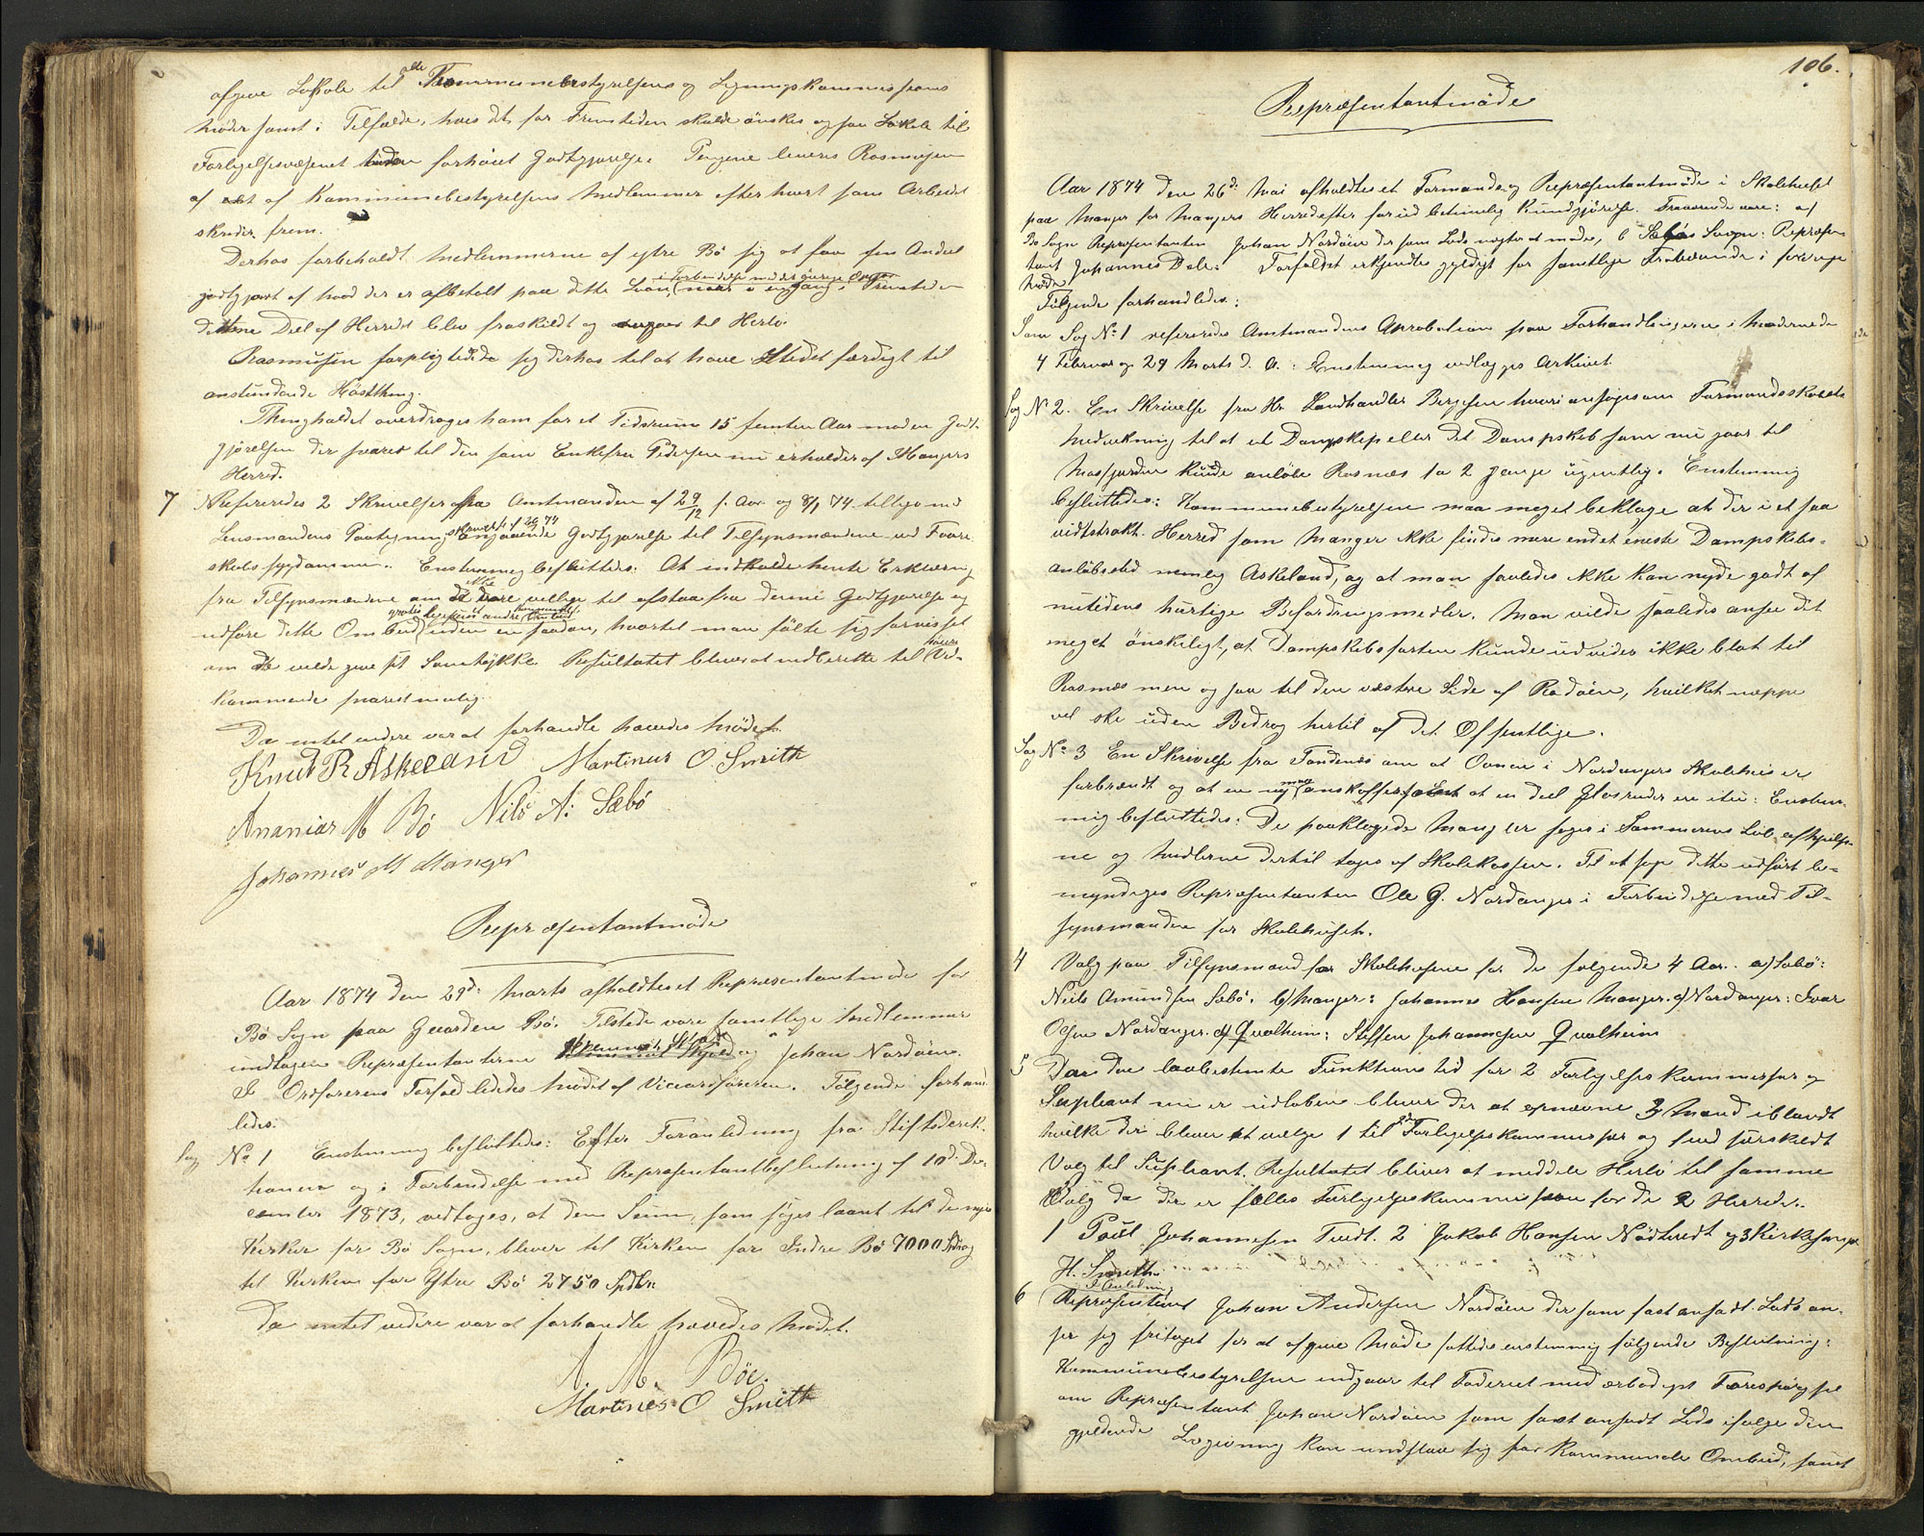 afgive Lokale til alle Kommunebestyrelsens og Ligningskommissions
Møder samt i Tilfælde, hvis det for Fremtiden skulde ønskes ogsaa Lokale til
Forligelsesvæsenet uden forhøiet Godtgjørelse. Pengene leveres Rasmussen
af et af Kommunebestyrelsens Medlemmer efterhvert som Arbeidet
skrider frem.
Derhos forbeholdt Medlemmerne af ytre Bø sig at faa sin Andel
godtgjort af hvad der er afbetalt paa dette Laan, naar i Fremtiden
i Forbindelse med det øvrige
denne Deel af Herredet blev fraskildt og til Herlø.
Rasmussen forpligtede sig derhos til at have Stedet færdigt til
anstundende Høstthing.
Thingholdet overdrages ham for et Tidsrum 15 femten Aar mod en Godt-
gjørelse der svarer til den som Enkefru Pedersen nu erholder af Mangers
Herred.
7 Refereredes 2 Skrivelser fra Amtmanden af 29/12 f. Aar og 8/1 74 tilligemed
Lensmandens Paategning angaaende Godtgjørelse til Tilsynsmændene ved Faare-
skabssygdomme. Enstemmig besluttedes: At indhente Erklæring
fra Tilsynsmændene om de ikke vare villige til at afstaa fra denne Godtgjørelse og
udføre dette Ombud uden en saadan, hvortil man følte sig forvisset
om de vilde give sit Samtykke. Resultatet bliver at indberette til Ved-
kommende snarest mulig.
Da intet videre var at forhandle hævedes Mødet.
Knud R Askeland Martinus O. Smith
Ananias M Bö Nils A: Sæbö
Johannes M Manger
Repræsentantmøde
Aar 1874 den 29de Marts afholdtes et Repræsentantmøde for
Bø Sogn paa Gaarden Bø. Tilstede vare samtlige Medlemmer
undtagen Repræsentanterne og Johan Nordøen.
I Ordførerens Forfald lededes Mødet af Viceordføreren. Følgende forhand-
ledes:
Sag No 1 Enstemmig besluttedes: Efter Foranledning fra Stiftsdirek-
tionen og i Forbindelse med Repræsentantbeslutning af 10de De-
cember 1873, vedtages, at den Sum, som søges laant til de nye
Kirker for Bø Sogn, bliver til Kirken for Indre Bø 7000 Spd og
til Kirken for Ytre Bø 2750 Spdlr.
Da intet videre var at forhandle hævedes Mødet.
A. M. Böe.
Martinus O Smith
106.
Repræsentantmøde
Aar 1874 den 26de Mai afholdtes et Formands og Repræsentantmøde i Skolehuset
paa Manger for Mangers Herred efter forud betimelig Kundgjørelse. Fraværende vare: af
Bø Sogn Repræsentanten Johan Nordøen der som Lods nægter at møde, b Sæbø Sogn: Repræsen-
tant Johannes Dale. Forfaldet erkjendtes gyldigt for samtlige Fraværende i forrige
Møde.
Følgende forhandledes:
Som Sag No 1 refereredes Amtmandens Aprobation paa Forhandlingerne i Møderne de
4 Februar og 29 Marts d. A.: Enstemmig vedlægges Arkivet
Sag No 2. En Skrivelse fra Hr Landhandler Bergesen hvori ansøges om Formandskabets
Medvirkning til at et Dampskip eller det Dampskib som nu gaar til
Masfjorden kunde anløbe Rosnæs 1 a 2 Gange ugentlig. Enstemmig
besluttedes: Kommunebestyrelsen maa meget beklage at der i et saa
vidtstrakt Herred som Manger ikke findes mere end et eneste Dampskibs-
anløbssted nemlig Askeland, og at man saaledes ikke kan nyde godt af
nutidens hurtige Befordringsmedler. Man vilde saaledes ansee det
meget ønskeligt, at Dampskibsfarten kunde udvides ikke blot til
Rosnæs men ogsaa til den vestre Side af Radøen, hvilket neppe
vel ske uden Bidrag hertil af det Offentlige.
Sag No 3 En Skrivelse fra om at Ovnen i Nordangers Skolehus er
forbrændt og at en ny maa anskaffes samt at en deel Glasruder ere itu: Enstem-
mig besluttedes: De paaklagede Mangler søges i Sommerens Løb afhjulp-
ne og Midlerne dertil tages af Skolekassen. Til at faa dette udført be-
myndiges Repræsentanten Ole G. Nordanger i Forbindelse med Til-
synsmanden for Skolehuset.
4 Valg paa Tilsynsmænd for Skolehusene for de følgende 4 Aar. a) Sæbø:
Nils Amundsen Sæbø. b) Manger: Johannes Hansen Manger. c) Nordanger: Ivar
Olsen Nordanger. d) Qvalheim: Steffen Johannesen Qvalheim
5 Da den lovbestemte Funktionstid for 2 Forligelseskommissær og
Supleant nu er udløben bliver der at opnævne 3 Mænd iblandt
hvilke der bliver at vælge 1 til Forligelseskommissær og ved særskildt
Valg til Supleant. Resultatet bliver at meddele Herlø til samme
Valg da der er fælles Forligelseskommission for de 2 Herreder.
1 Poul Johannesen Tvedt. 2 Jakob Hansen Nødtvedt og 3 Kirkesanger
H. Smith.
6 I Anledning
Repræsentant Johan Andersen Nordøen der som fast ansadt Lods an-
ser sig fritaget for at afgive Møde fattedes enstemmig følgende Beslutning:
Kommunebestyrelsen indgaar til Fogderiet med ærbødigst Forespørgsel
om Repræsentant Johan Nordøen som fast ansadt Lods ifølge den
gjeldende Lovgivning kan undslaa sig for Kommunale Ombud, samt